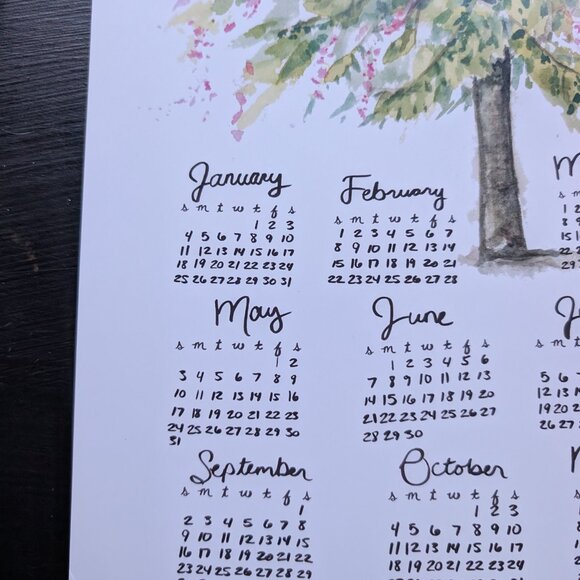 January February M
s m t w t f s s m t w t f s s m
1 2 3 1 2 3 4 5 6 7 1 2
4 5 6 7 8 9 10 8 9 10 11 12 13 14 8 9
11 12 13 14 15 16 17 15 16 17 18 19 20 21 15 1
18 19 20 21 22 23 24 22 23 24 25 26 27 28 22
25 26 27 28 29 30 31 29
May June J
s m t w t f s s m t w t f s s m
1 2 1 2 3 4 5 6
3 4 5 6 7 8 9 7 8 9 10 11 12 13 5 6
10 11 12 13 14 15 16 14 15 16 17 18 19 20 12 13
17 18 19 20 21 22 23 21 22 23 24 25 26 27 19 20
24 25 26 27 28 29 30 28 29 30 26 27
31
September October
s m t w t f s s m t w t f s
1 1 2 3
2 3 4 5 6 7 8 4 5 6 7 8 9 10
9 10 11 12 13 14 15 11 12 13 14 15 16 17
16 17 18 19 20 21 22 18 19 20 21 22 23 24
23 24 25 26 27 28 29